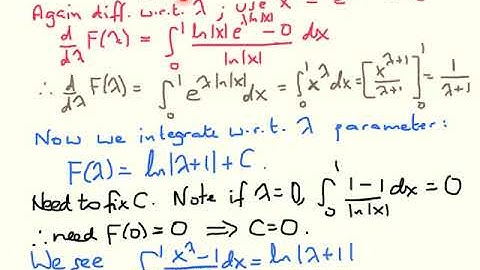 Again diff. w.r.t. λ ; use x = e^{ln|x|}
d/dλ F(λ) = ∫₀¹ (ln|x| e^{λln|x|} − 0)/ln|x| dx
∴ d/dλ F(λ) = ∫₀¹ e^{λ ln|x|} dx = ∫₀¹ x^λ dx = [x^{λ+1}/(λ+1)]₀¹ = 1/(λ+1)
Now we integrate w.r.t. λ parameter:
F(λ) = ln|λ+1| + C.
Need to fix C. Note if λ=0, ∫₀¹ (1−1)/ln|x| dx = 0
∴ need F(0) = 0 ⟹ C=0.
We see ∫ x^λ−1 dx = ln|λ+1|